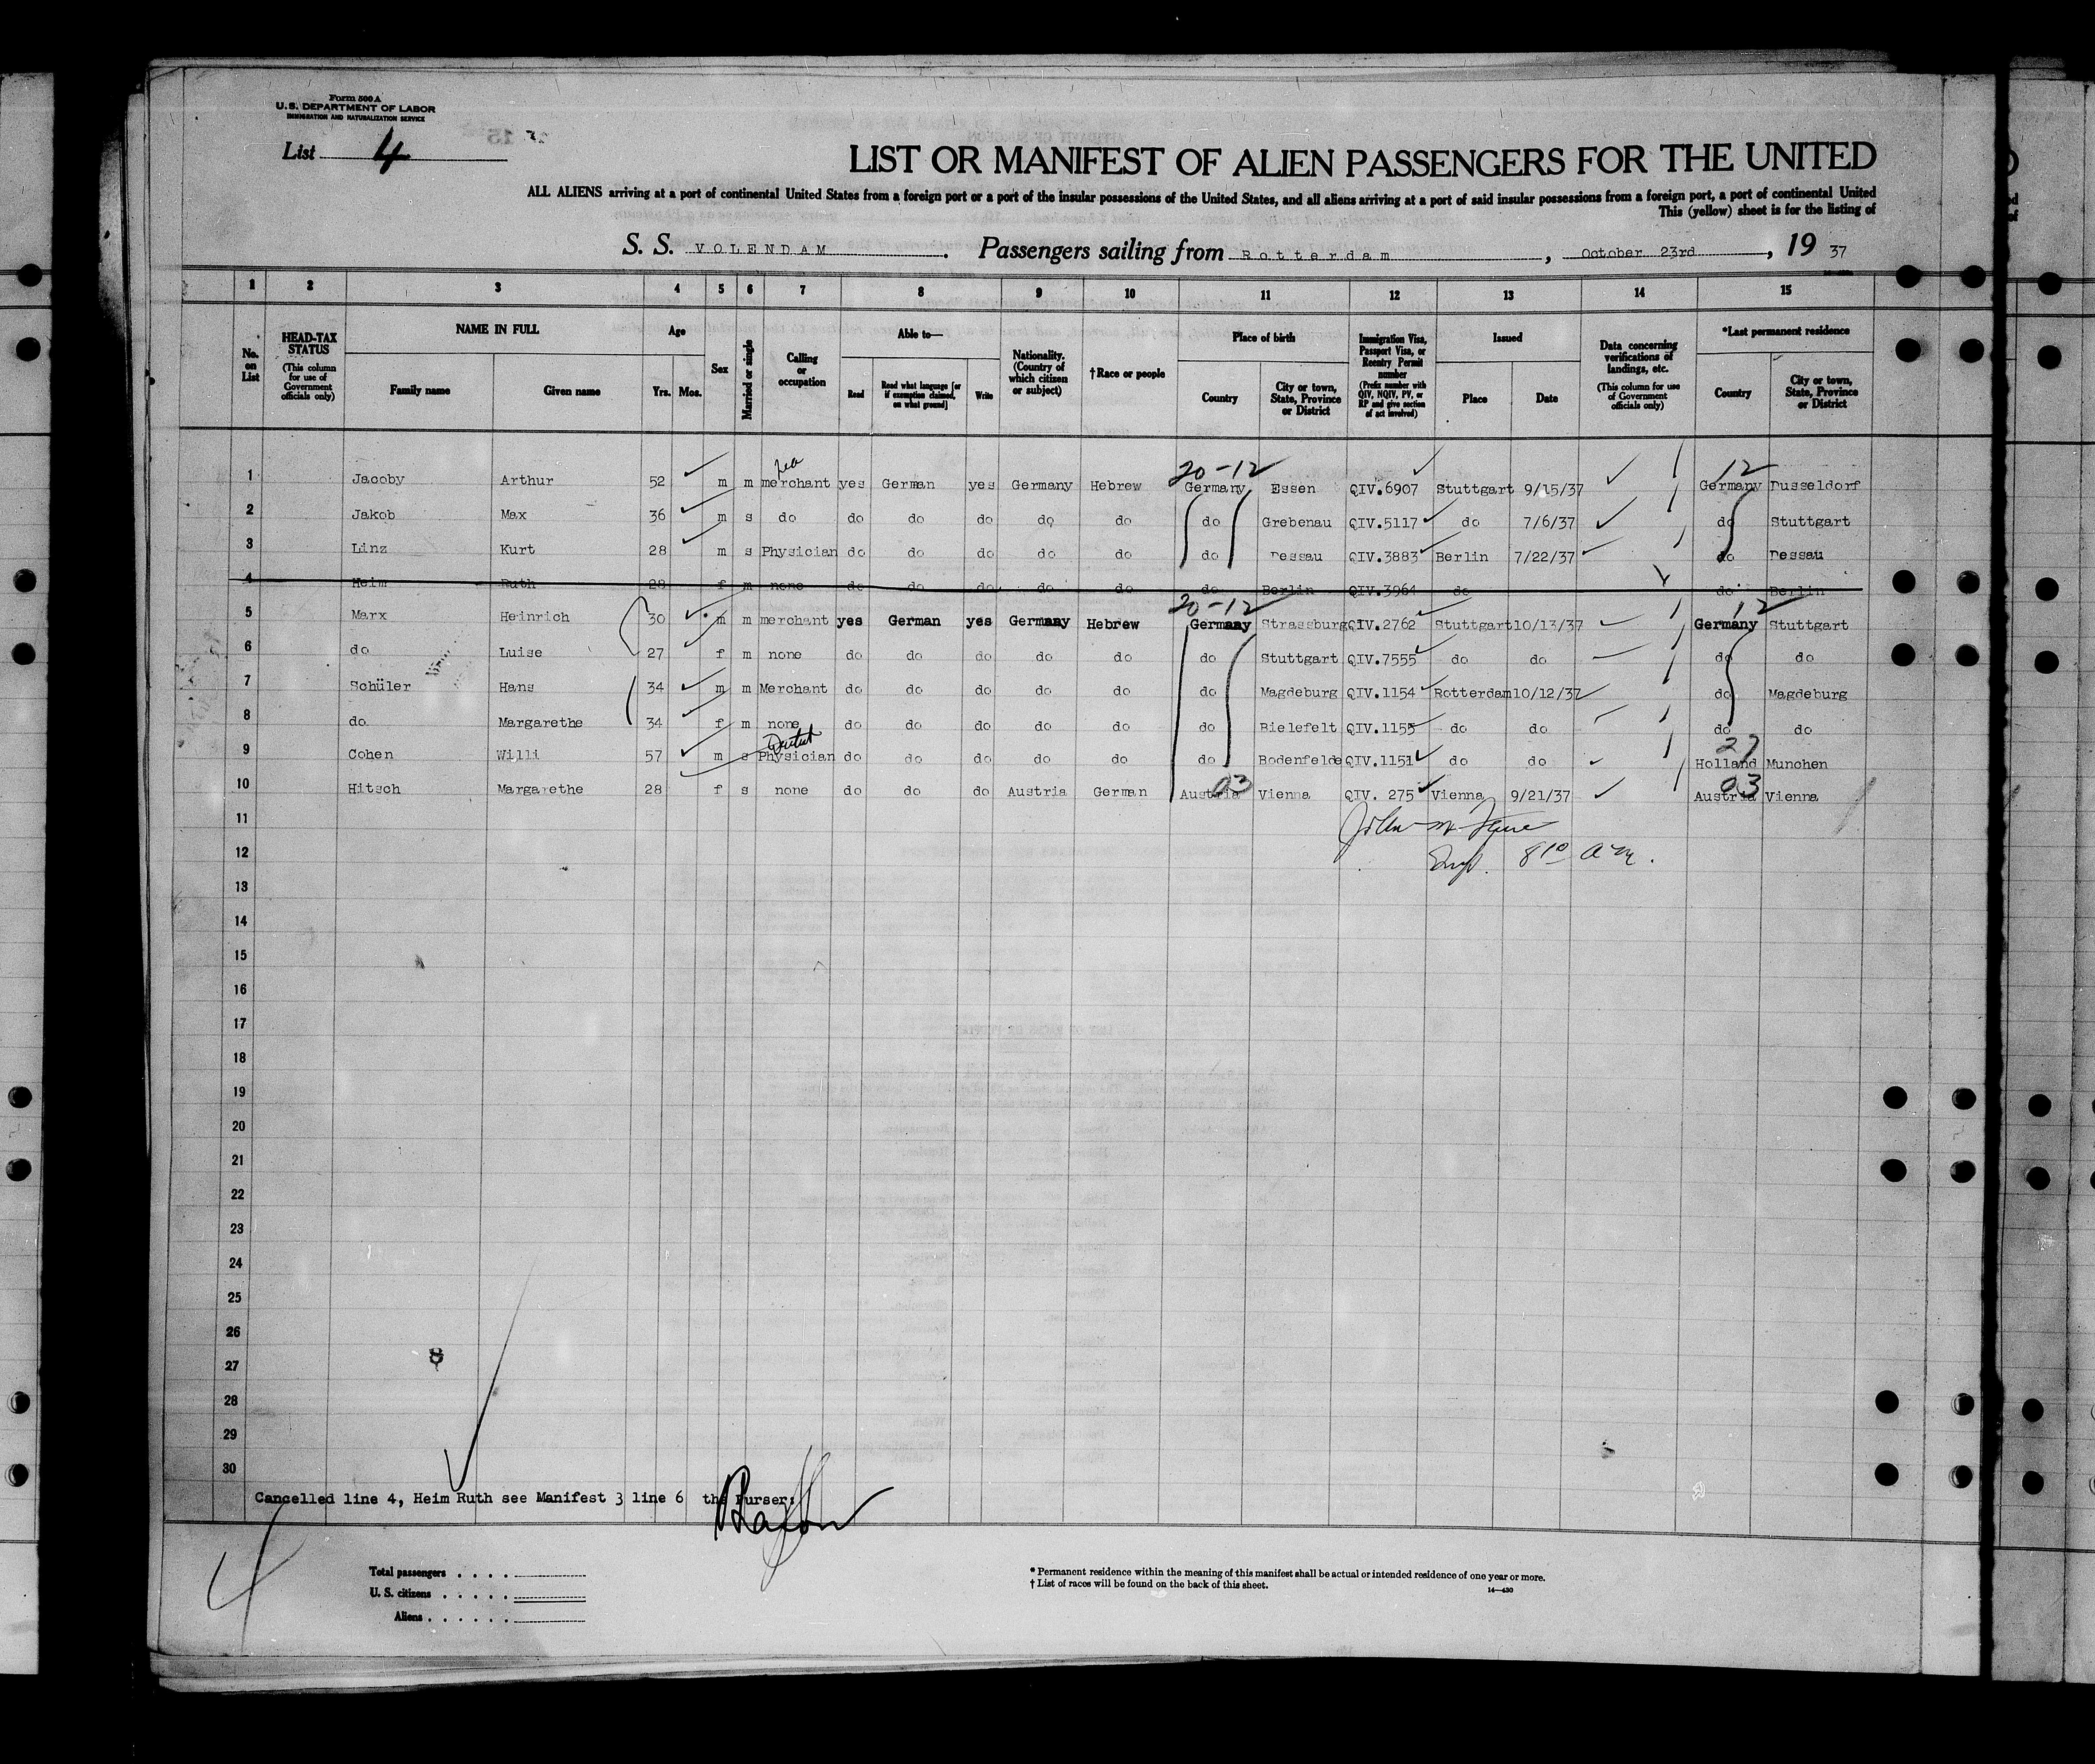 Form 500 A
U.S. DEPARTMENT OF LABOR
IMMIGRATION AND NATURALIZATION SERVICE
List 4
LIST OR MANIFEST OF ALIEN PASSENGERS FOR THE UNITED
ALL ALIENS arriving at a port of continental United States from a foreign port or a port of the insular possessions of the United States, and all aliens arriving at a port of said insular possessions from a foreign port, a port of continental United
This (yellow) sheet is for the listing of
S. S. VOLENDAM. Passengers sailing from Rotterdam, October 23rd, 19 37
1 2 3 4 5 6 7 8 9 10 11 12 13 14 15
No. on List
HEAD-TAX STATUS (This column for use of Government officials only)
NAME IN FULL
Family name Given name
Age
Yrs. Mos.
Sex
Married or single
Calling or occupation
Able to—
Read Read what language [or if exemption claimed, on what ground] Write
Nationality. (Country of which citizen or subject)
†Race or people
Place of birth
Country City or town, State, Province or District
Immigration Visa, Passport Visa, or Reentry Permit number (Prefix number with QIV, NQIV, PV, or RP and give section of act involved)
Issued
Place Date
Data concerning verifications of landings, etc. (This column for use of Government officials only)
*Last permanent residence
Country City or town, State, Province or District
20-12 12
1 Jacoby Arthur 52 m m merchant yes German yes Germany Hebrew Germany Essen QIV.6907 Stuttgart 9/15/37 Germany Dusseldorf
2 Jakob Max 36 m s do do do do do do do Grebenau QIV.5117 do 7/6/37 do Stuttgart
3 Linz Kurt 28 m s Physician do do do do do do Dessau QIV.3883 Berlin 7/22/37 do Dessau
4 Heim Ruth 28 f m none do do do do do do Berlin QIV.3964 do do Berlin
20-12 12
5 Marx Heinrich 30 m m merchant yes German yes Germany Hebrew Germany Strassburg QIV.2762 Stuttgart 10/13/37 Germany Stuttgart
6 do Luise 27 f m none do do do do do do Stuttgart QIV.7555 do do do do
7 Schüler Hans 34 m m Merchant do do do do do do Magdeburg QIV.1154 Rotterdam 10/12/37 do Magdeburg
8 do Margarethe 34 f m none do do do do do do Bielefelt QIV.1155 do do do do
27
9 Cohen Willi 57 m s Physician do do do do do do Bodenfelde QIV.1151 do do Holland Munchen
03 03
10 Hitsch Margarethe 28 f s none do do do Austria German Austria Vienna QIV. 275 Vienna 9/21/37 Austria Vienna
11
12 Insp. 8 10 am.
13
14
15
16
17
18
19
20
21
22
23
24
25
26
27
8
28
29
30
Cancelled line 4, Heim Ruth see Manifest 3 line 6 the Purser:
4
Total passengers
U. S. citizens
Aliens
* Permanent residence within the meaning of this manifest shall be actual or intended residence of one year or more.
† List of races will be found on the back of this sheet.
14—430